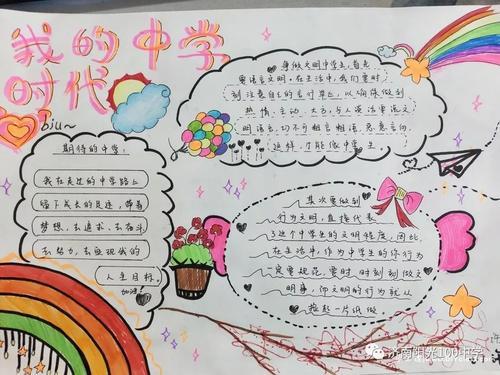 我的中学
时代
Biu~
期待的中学:
我在走过的中学路上
踏下成长的足迹,带着
梦想,去追求,去奋斗
去努力,去实现我的
人生目标。
加油!
争做文明中学生,首先
要语言文明。在生活中,我们要时
刻注意自己的言行举止,以确保做到
热情、主动、大方,与人交谈中语文
明语言,切不可粗言粗语,恶意言向
这样,才能做中学生。
其次要做到
行为文明,直接代表
了这个中学生的文明程度,因此,
在生活中,作为中学生的你行为
一定要规范,要时时刻刻做文
明事,你文明的行为就从
捡起一片纸做
济南阳光100中学